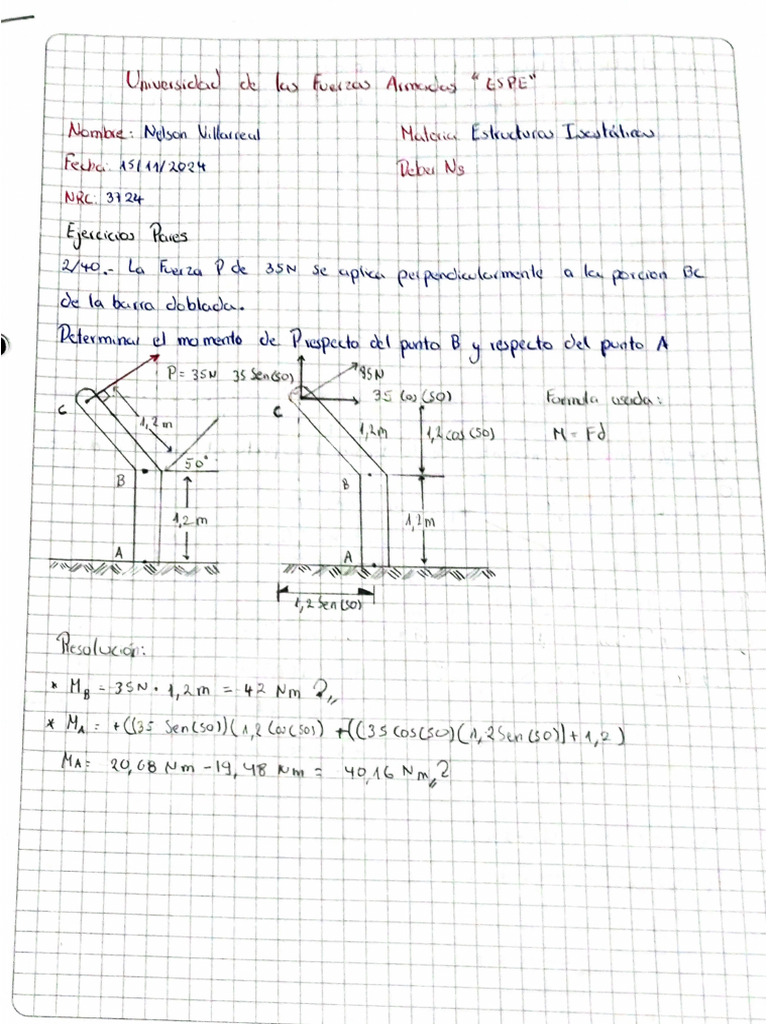 Universidad de las Fuerzas Armadas "ESPE"
Nombre: Nelson Villarreal
Materia: Estructuras Isostáticas
Fecha: 15/11/2024
Deber N5
NRC: 3724
Ejercicios Pares
2/40.- La Fuerza P de 35N se aplica perpendicularmente a la porcion BC
de la barra doblada.
Determinar el momento de P respecto del punto B y respecto del punto A
P = 35N
C
1,2 m
50°
B
1,2 m
A
35 Sen(50)
35N
35 Cos (50)
C
1,2m
1,2 cos (50)
B
1,2 m
A
1,2 Sen(50)
Formula usada:
M = Fd
Resolución:
* MB = 35N · 1,2 m = 42 Nm
* MA: +((35 Sen(50))(1,2 Cos(50)) +((35 Cos(50)(1,2Sen(50)]+1,2)
MA= 20,68 Nm -19,48 Nm = 40,16 Nm